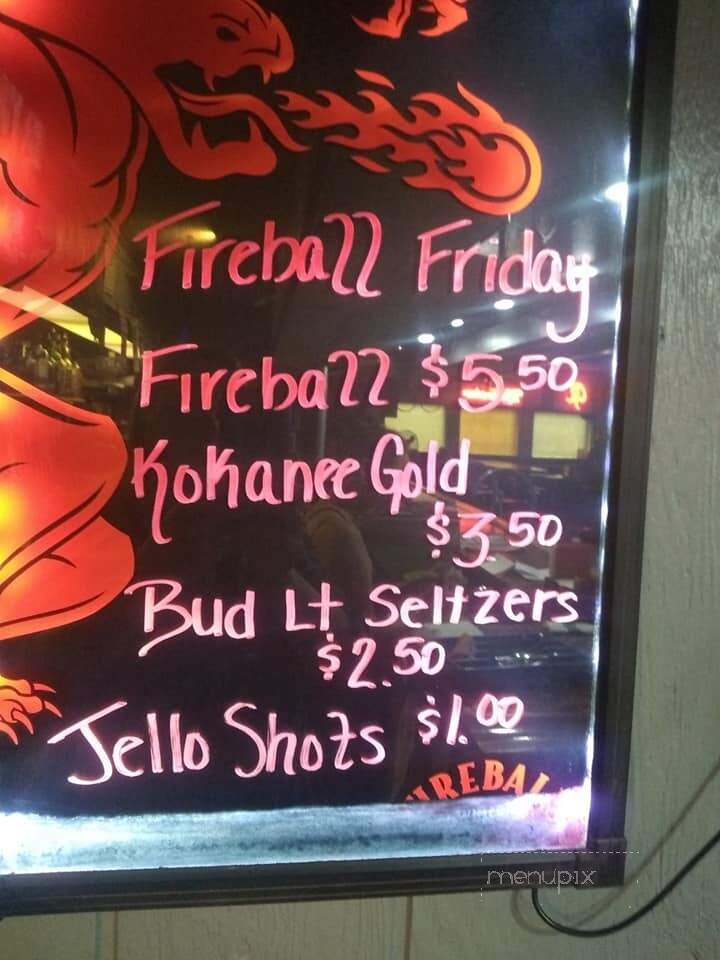 Fireball Friday
Fireball $5.50
Kokanee Gold
$3.50
Bud Lt Seltzers
$2.50
Jello Shots $1.00
FIREBALL
menupix